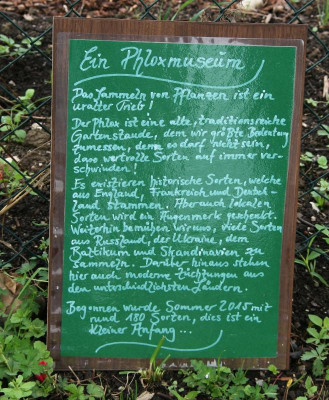 Ein Phloxmuseum
Das Sammeln von Pflanzen ist ein
uralter Trieb!
Der Phlox ist eine alte, traditionsreiche
Gartenstaude, dem wir größte Bedeutung
zumessen, denn es darf nicht sein,
dass wertvolle Sorten auf immer ver-
schwinden!
Es existieren historische Sorten, welche
aus England, Frankreich und Deutsch-
land stammen. Aber auch lokalen
Sorten wird ein Augenmerk geschenkt.
Weiterhin bemühen wir uns, viele Sorten
aus Russland, der Ukraine, dem
Baltikum und Skandinavien zu
sammeln. Darüber hinaus stehen
hier auch moderne Züchtungen aus
den unterschiedlichsten Ländern.
Begonnen wurde Sommer 2015 mit
rund 180 Sorten, dies ist ein
kleiner Anfang...